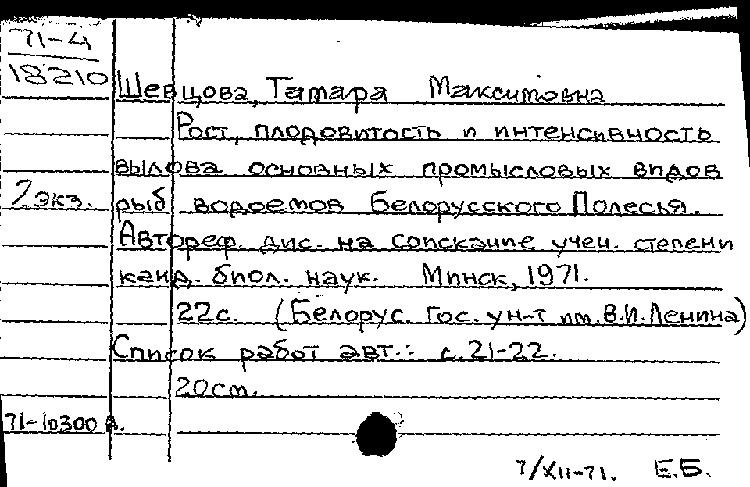 71-4
18210
Шевцова, Тамара Максимовна
Рост, плодовитость и интенсивность
вылова основных промысловых видов
2 экз. рыб водоемов Белорусского Полесья.
Автореф. дис. на соискание учен. степени
канд. биол. наук. Минск, 1971.
22с. (Белорус. гос. ун-т им. В.И. Ленина)
Список работ авт.: с. 21-22.
20см.
71-10300а.
7/XII-71. Е.Б.